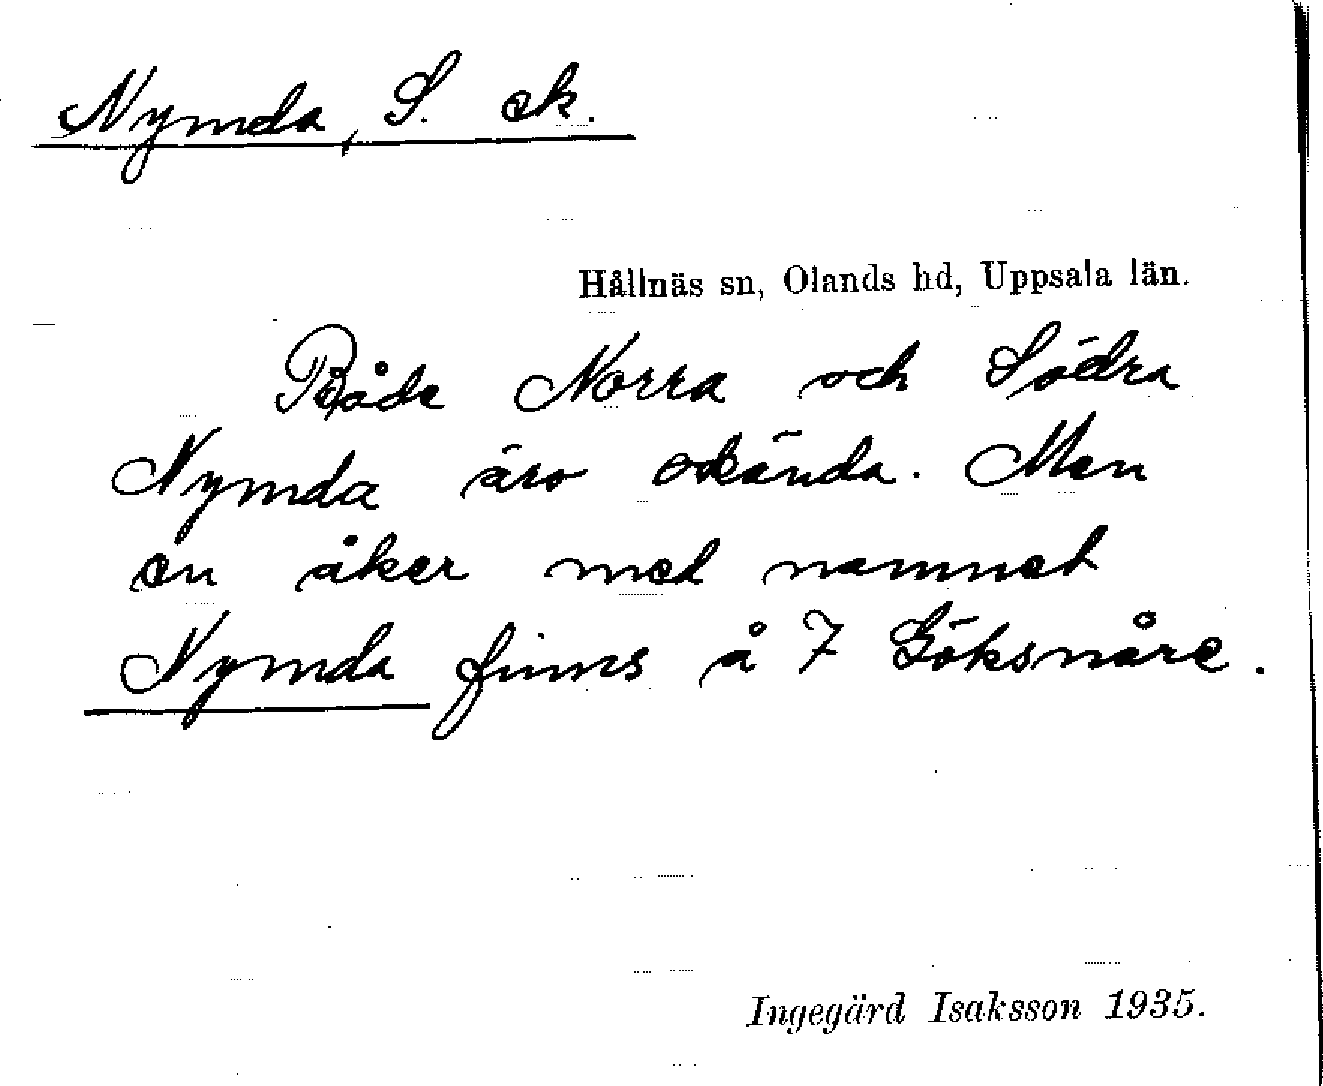 Nymda, S. ek.
Hållnäs sn, Olands hd, Uppsala län.
Både Norra och Södra
Nymda äro okända. Men
en åker med namnet
Nymda finns å 7 Göksnåre.
Ingegärd Isaksson 1935.